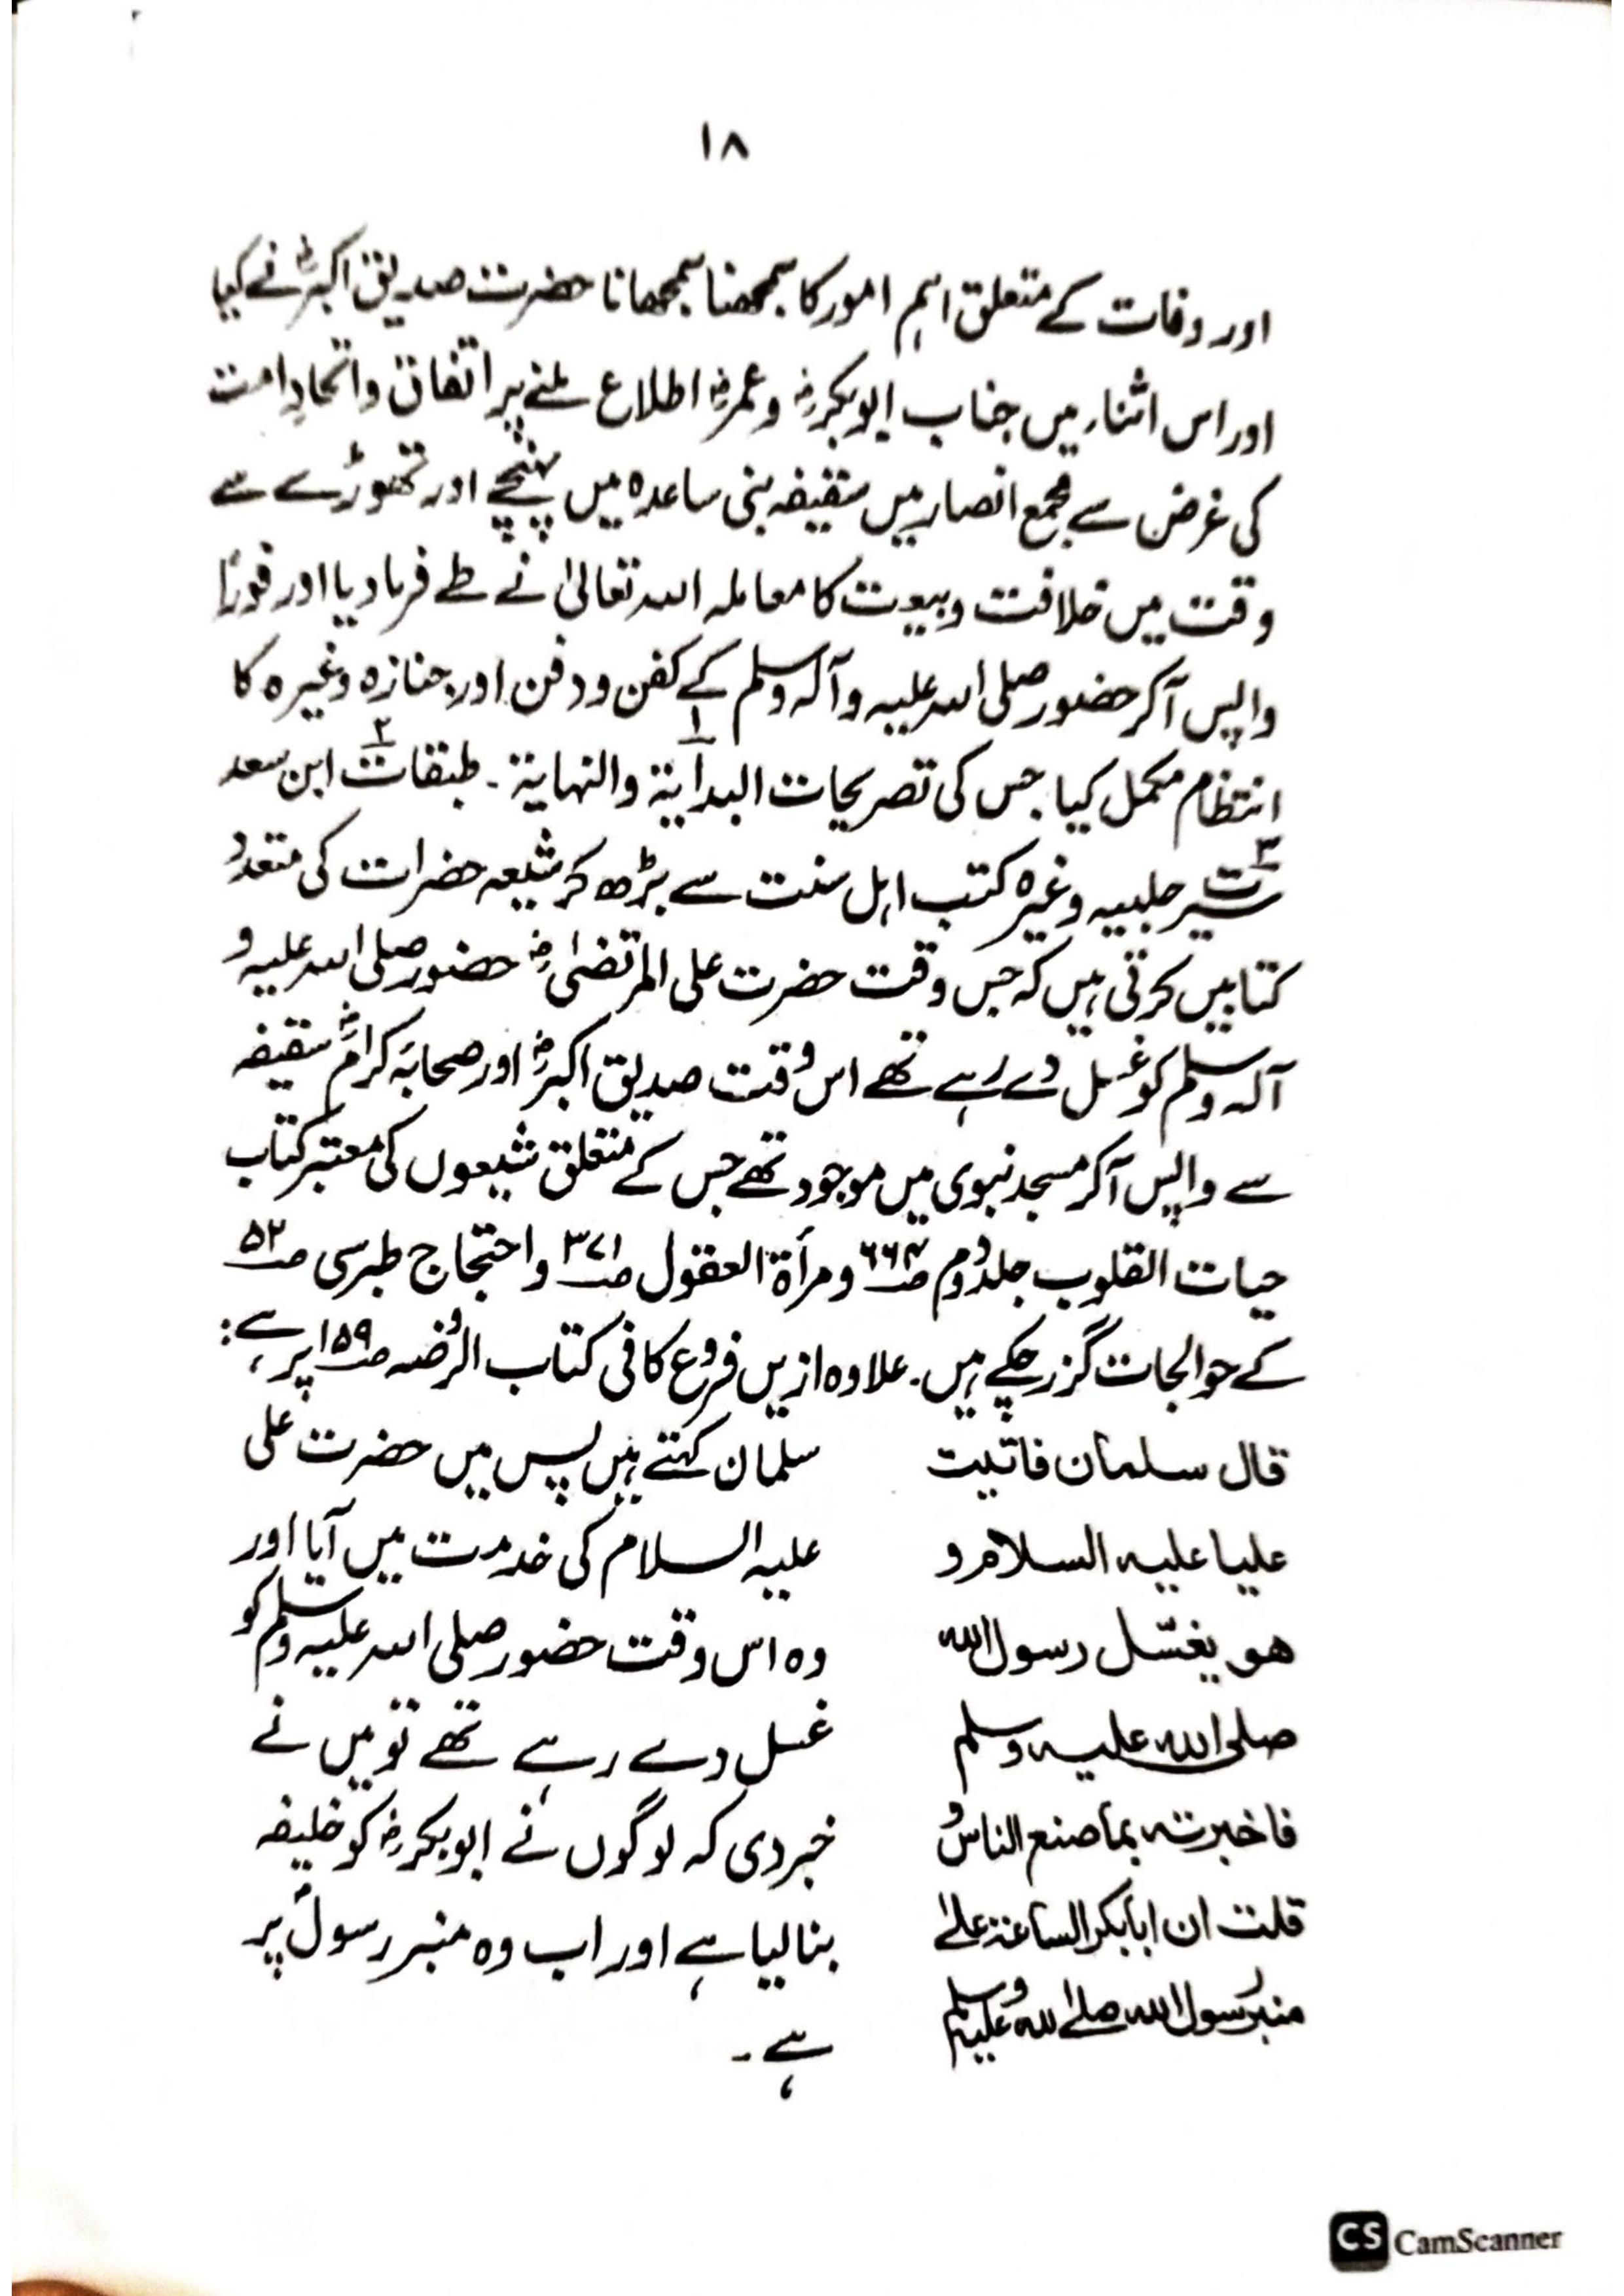 ۱۸
اور وفات کے متعلق اہم امور کا سمجھنا سمجھانا حضرت صدیق اکبرؓ نے کیا
اور اس اثناء میں جناب ابوبکرؓ و عمرؓ اطلاع ملنے پر اتفاق و اتحادِ امت
کی غرض سے مجمع انصار میں سقیفہ بنی ساعدہ میں پہنچے اور تھوڑے سے
وقت میں خلافت و بیعت کا معاملہ اللہ تعالیٰ نے طے فرما دیا اور فوراً
واپس آکر حضور صلی اللہ علیہ وآلہ وسلم کے کفن و دفن اور جنازہ وغیرہ کا
انتظام مکمل کیا جس کی تصریحات البدایۃ والنہایۃ ۱ ۔ طبقات ۲ ابن سعد
سیرت ۳ حلبیہ وغیرہ کتب اہل سنت سے بڑھ کر شیعہ حضرات کی متعدد
کتابیں کرتی ہیں کہ جس وقت حضرت علی المرتضیٰؓ حضور صلی اللہ علیہ و
آلہ وسلم کو غسل دے رہے تھے اس وقت صدیق اکبرؓ اور صحابہ کرامؓ سقیفہ
سے واپس آکر مسجد نبوی میں موجود تھے جس کے متعلق شیعوں کی معتبر کتاب
حیات القلوب جلد دوم صـ ۶۶۴ و مرأۃ العقول صـ ۳۷۱ و احتجاج طبرسی صـ ۵۲
کے حوالجات گزر چکے ہیں۔ علاوہ ازیں فروع کافی کتاب الروضہ صـ ۱۵۹ پر ہے:
قال سلمان فاتیت
علیا علیہ السلام و
ھو یغسّل رسول اللہ
صلی اللہ علیہ وسلم
فاخبرتہ بما صنع الناس و
قلت ان ابابکر الساعۃ علیٰ
منبر رسول اللہ صلے اللہ علیہ وسلم
سلمان کہتے ہیں پس میں حضرت علی
علیہ السلام کی خدمت میں آیا اور
وہ اس وقت حضور صلی اللہ علیہ وسلم کو
غسل دے رہے تھے تو میں نے
خبر دی کہ لوگوں نے ابوبکرؓ کو خلیفہ
بنا لیا ہے اور اب وہ منبر رسولؐ پر
ہے۔
CS CamScanner